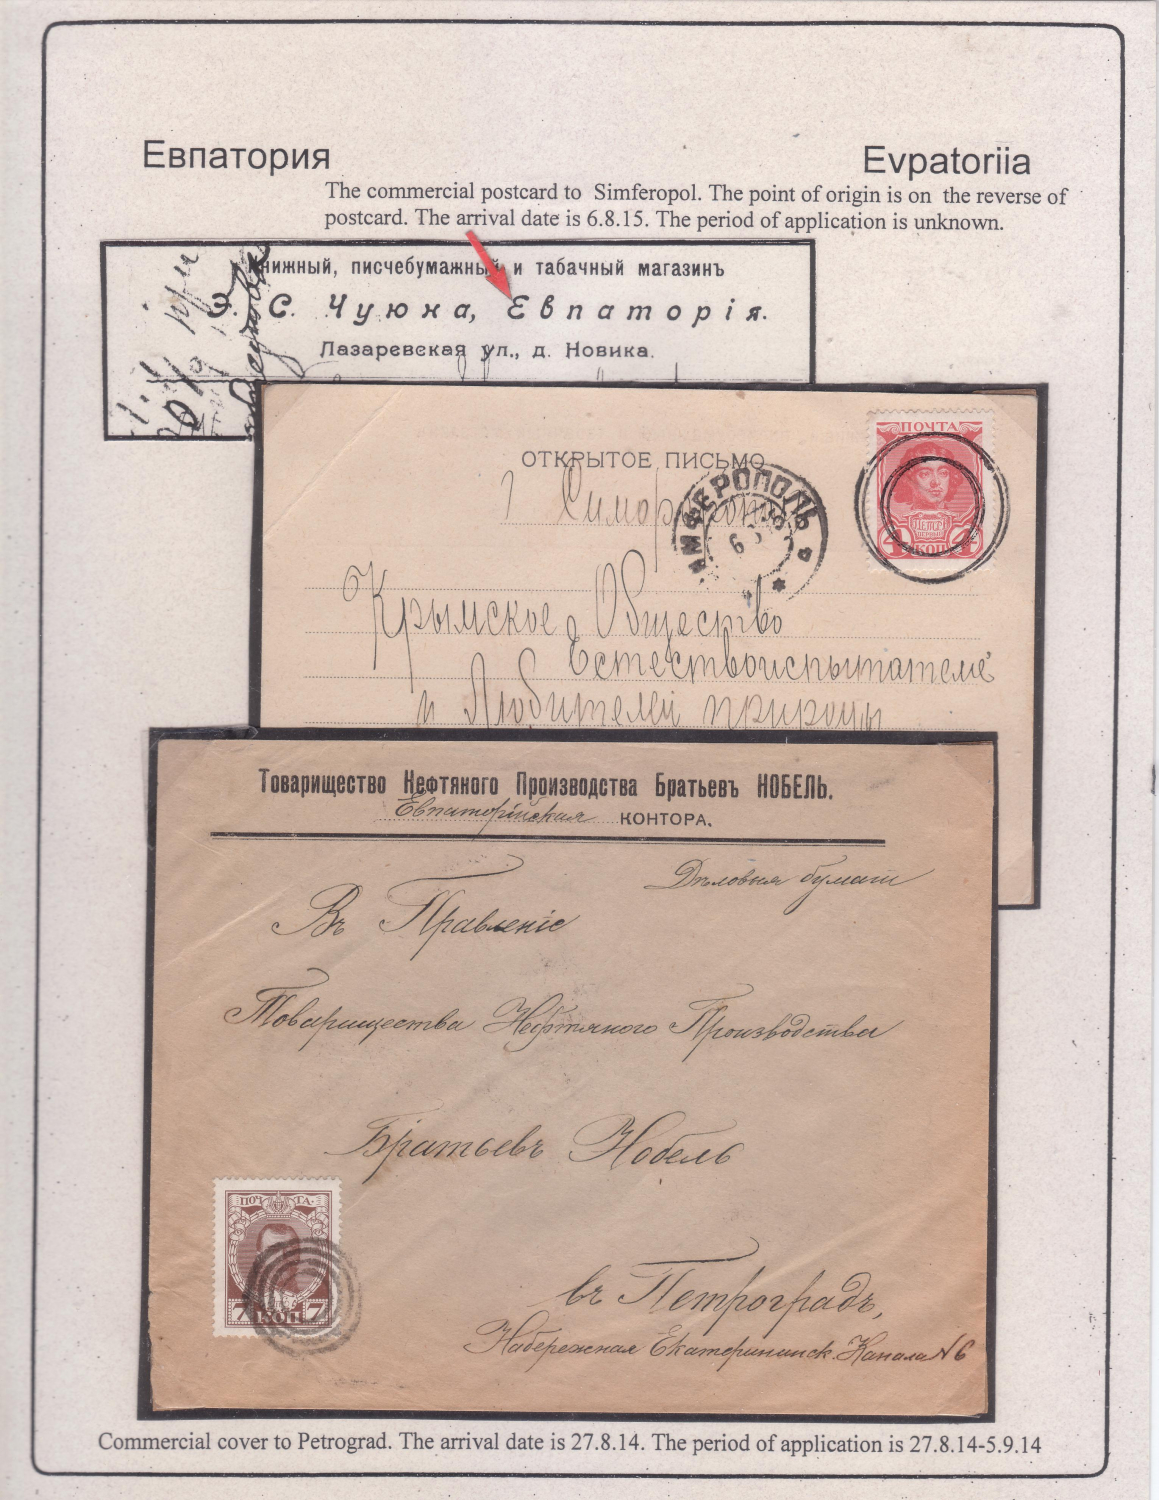 Евпатория
Evpatoriia
The commercial postcard to Simferopol. The point of origin is on the reverse of
postcard. The arrival date is 6.8.15. The period of application is unknown.
Книжный, писчебумажный и табачный магазинъ
Э. С. Чуюна, Евпаторія.
Лазаревская ул., д. Новика.
ОТКРЫТОЕ ПИСЬМО
ПОЧТА
4 КОП 4
СИМФЕРОПОЛЬ
6
Крымское Общество
Естествоиспытателей
и Любителей природы
Товарищество Нефтяного Производства Братьевъ НОБЕЛЬ.
Евпаторійская КОНТОРА.
Дѣловыя бумаги
Въ Правленіе
Товарищества Нефтяного Производства
Братьевъ Нобель
ПОЧТА
7 КОП 7
въ Петроградъ,
Набережная Екатерининск. Канала N 6
Commercial cover to Petrograd. The arrival date is 27.8.14. The period of application is 27.8.14-5.9.14